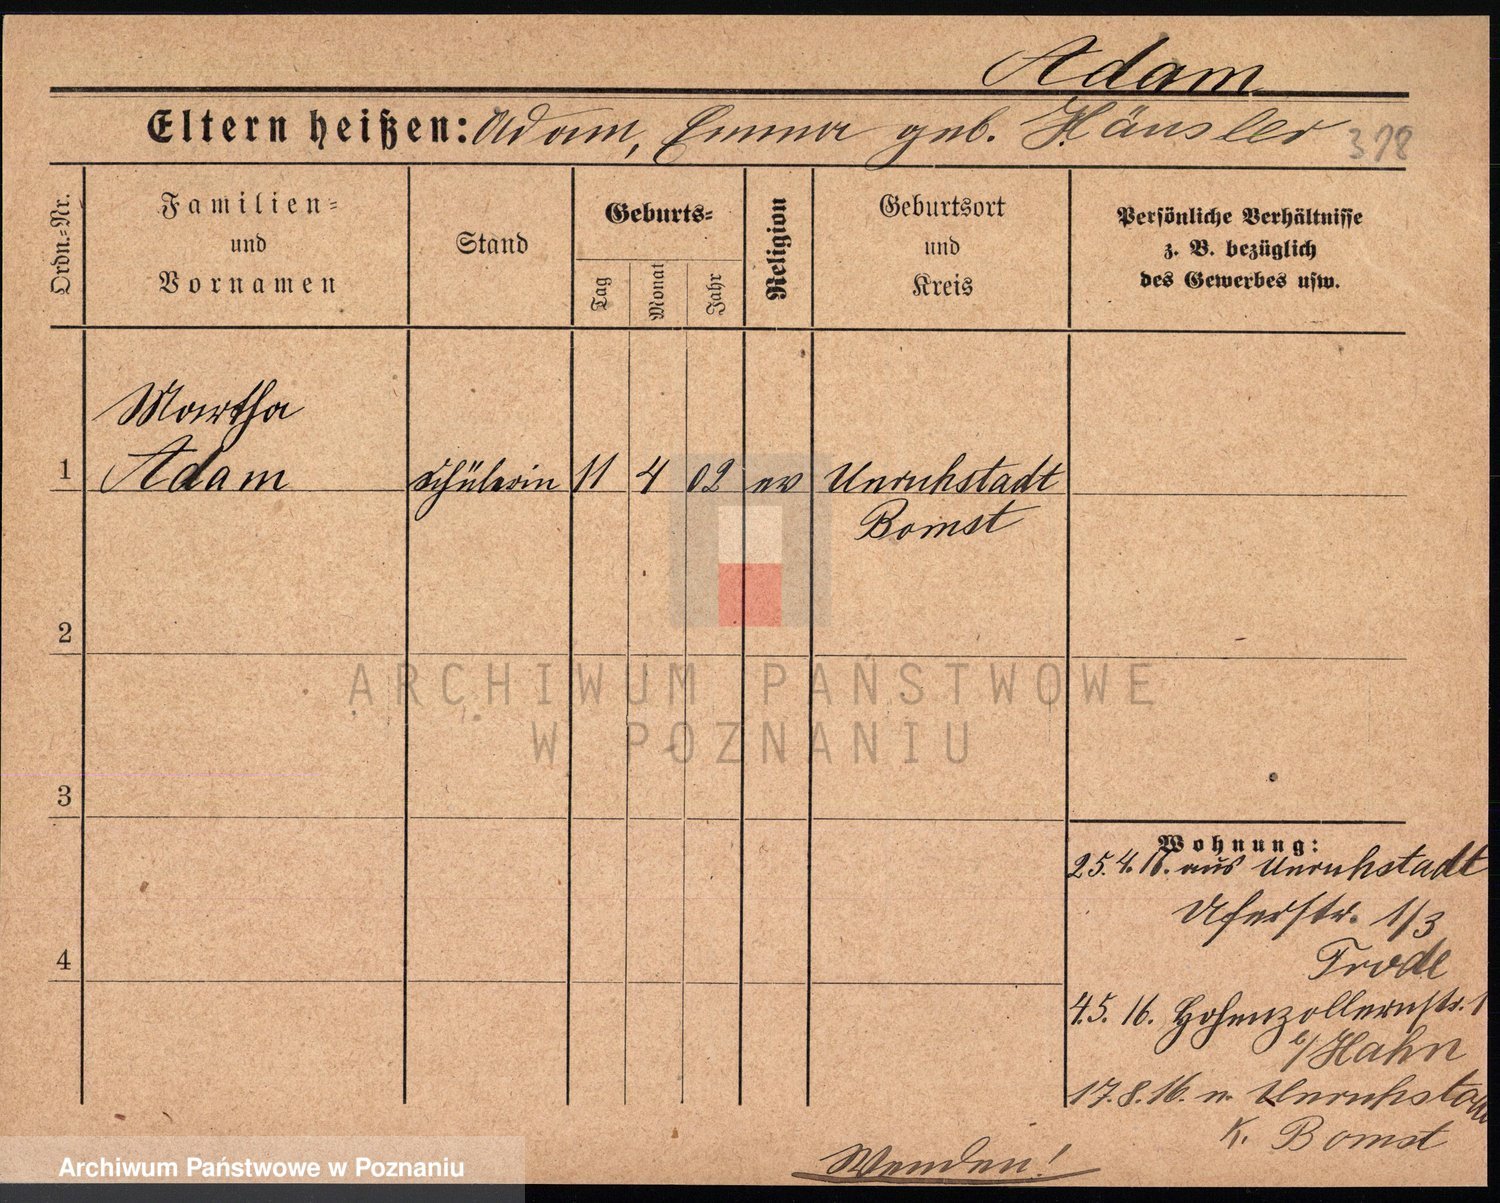 Adam
Eltern heißen: Adam, Emma geb. Hänsler 318
Ordn.-Nr.
Familien-
und
Vornamen
Stand
Geburts-
Tag
Monat
Jahr
Religion
Geburtsort
und
Kreis
Persönliche Verhältnisse
z. B. bezüglich
des Gewerbes usw.
Martha
1 Adam Schülerin 11 4 02 ev Unruhstadt
Bomst
2
ARCHIWUM PAŃSTWOWE
W POZNANIU
3
Wohnung:
25.4.16. aus Unruhstadt
Uferstr. 1/3
Trode
4
4.5.16. Hohenzollernstr. 1
b/Hahn
17.8.16. n. Unruhstadt
K. Bomst
Wenden!
Archiwum Państwowe w Poznaniu